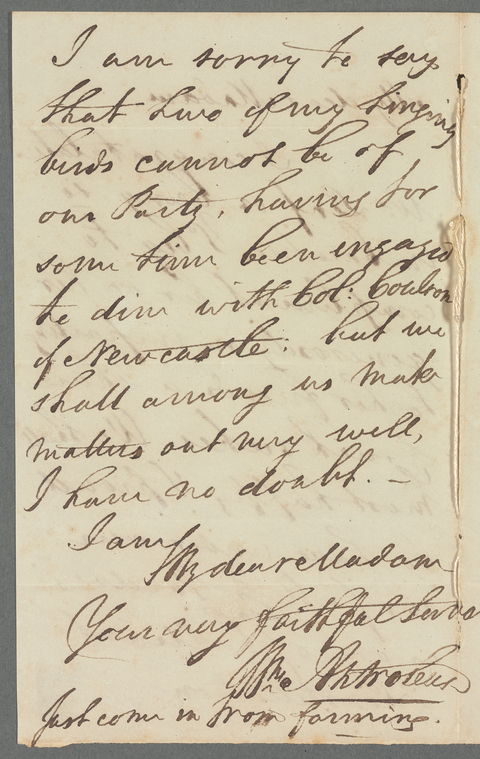 I am sorry to say
that two of my singing
birds cannot be of
our Party, having for
some time been engaged
to dine with Col: Coulson
of Newcastle: but we
shall among us make
matters out very well,
I have no doubt. —
I am
My dear Madam
Your very faithful Serv
Just come in from farming.